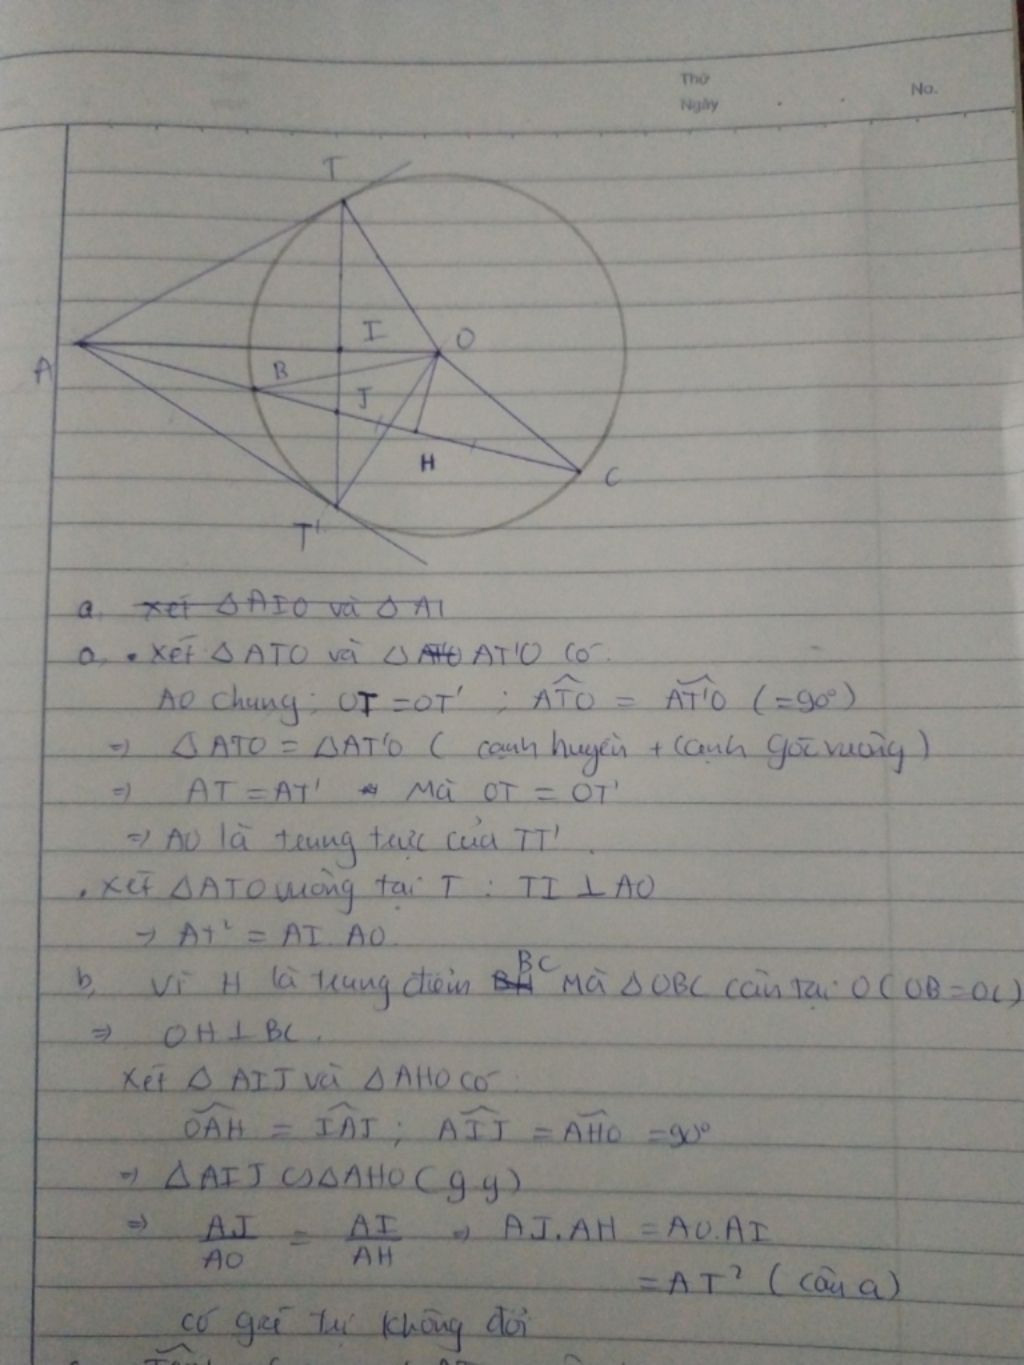 Thứ
Ngày
No.
T
A
I
O
B
J
H
C
T'
a, xét △AIO và △AI
a, • xét △ATO và △AHO AT'O có
AO chung; OT = OT' ; ATO = AT'O (=90°)
⇒ △ATO = △AT'O (cạnh huyền + cạnh góc vuông)
⇒ AT = AT' Mà OT = OT'
⇒ AO là trung trực của TT'.
. xét △ATO vuông tại T : TI ⊥ AO
→ AT² = AI. AO
b, Vì H là trung điểm BH BC Mà △OBC cân tại O (OB = OC)
⇒ OH ⊥ BC.
xét △ AIJ và △AHO có
OAH = IAJ ; AIJ = AHO = 90°
⇒ △AIJ ∽ △AHO (g g)
⇒ AJ/AO = AI/AH ⇒ AJ.AH = AO.AI
= AT² (câu a)
có giá trị không đổi